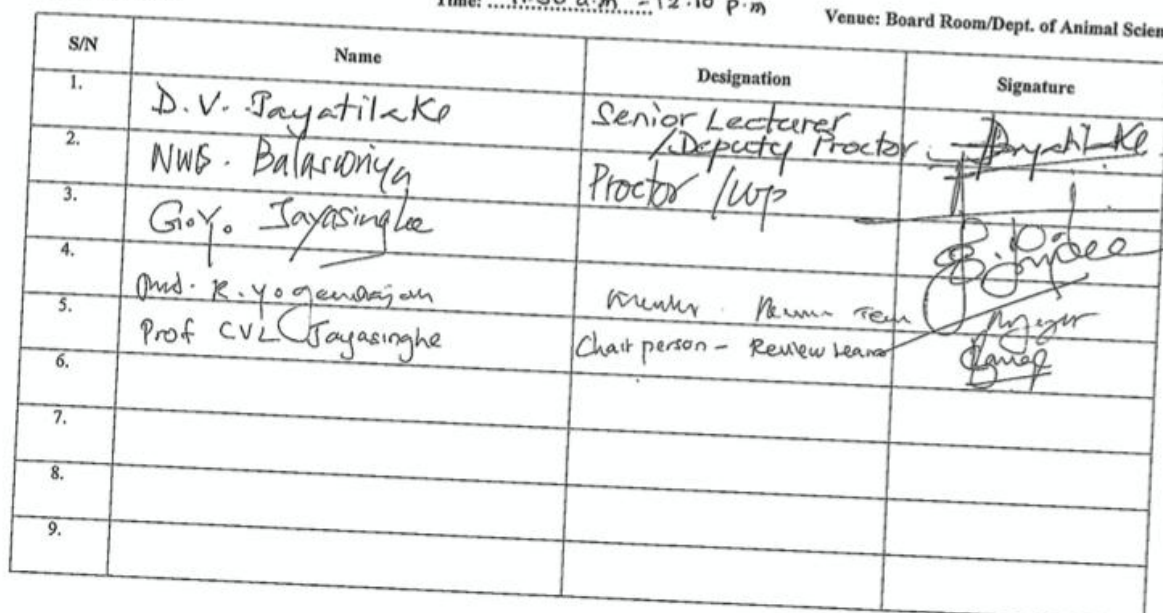 Time: .................... - 12.10 p.m
Venue: Board Room/Dept. of Animal Scien
S/N Name Designation Signature
1. D.V. Jayatilake Senior Lecturer /Deputy Proctor Jayatilake
2. NWB. Balasooriya Proctor /WP
3. G.V. Jayasinghe
4. R. Yogendrajah Team
5. Prof CVL Jayasinghe Chair person - Review team
6.
7.
8.
9.